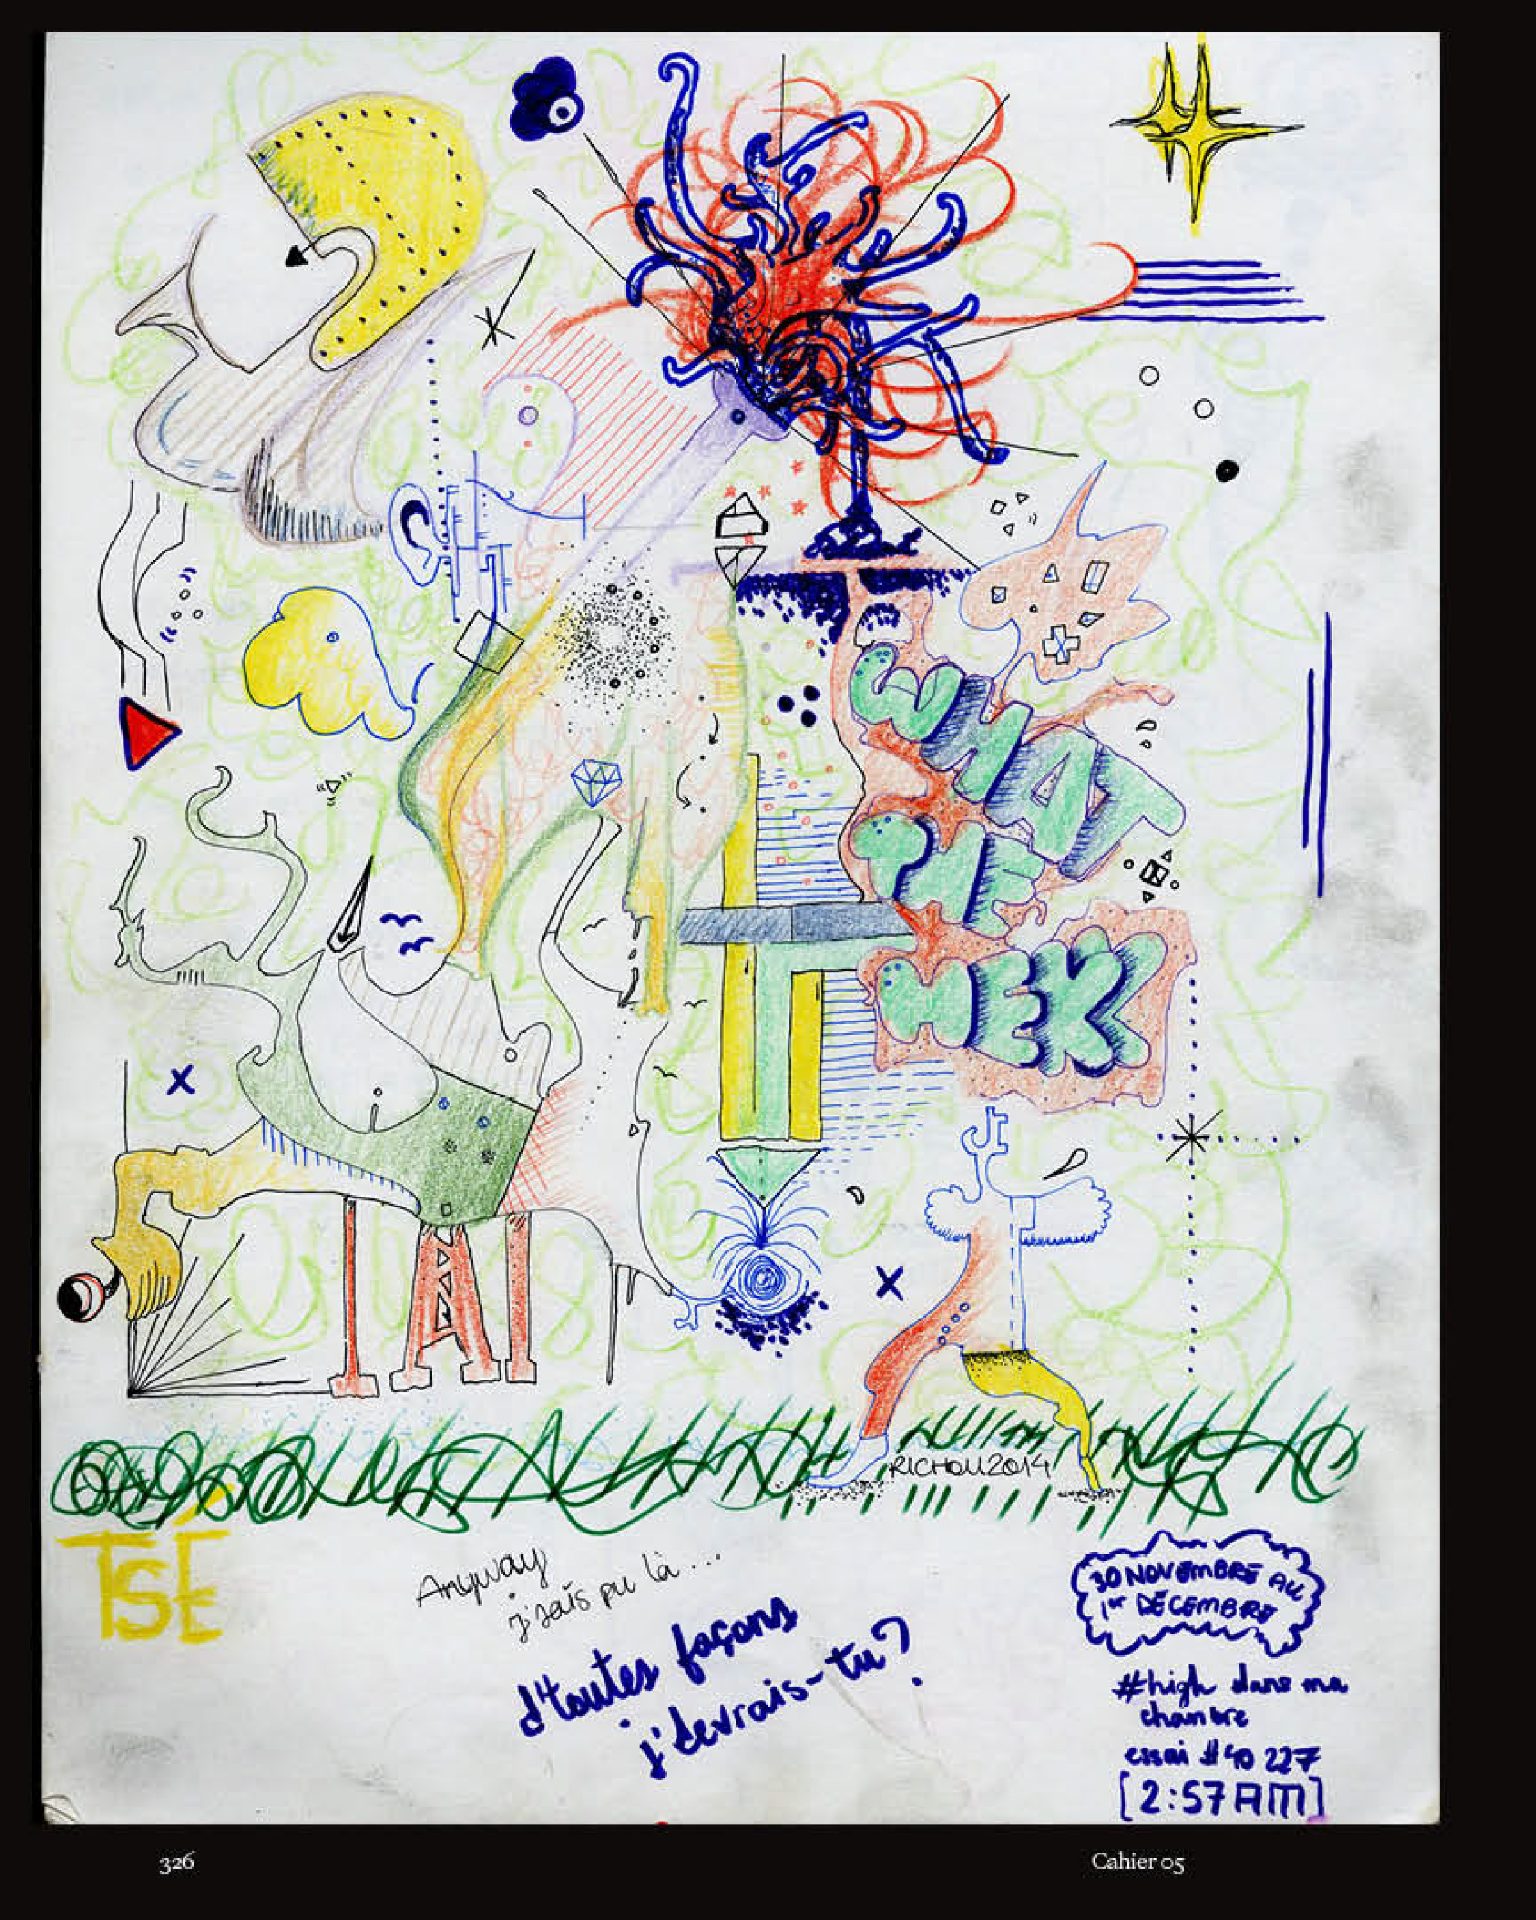 WHAT
THE
HEK
RICHOU2014
TSÉ
Anyway
j'sais pu là...
d'toutes façons
j'devrais-tu?
30 NOVEMBRE AU
1er DÉCEMBRE
#high dans ma
chambre
essai #40 227
[2:57 AM]
326
Cahier 05